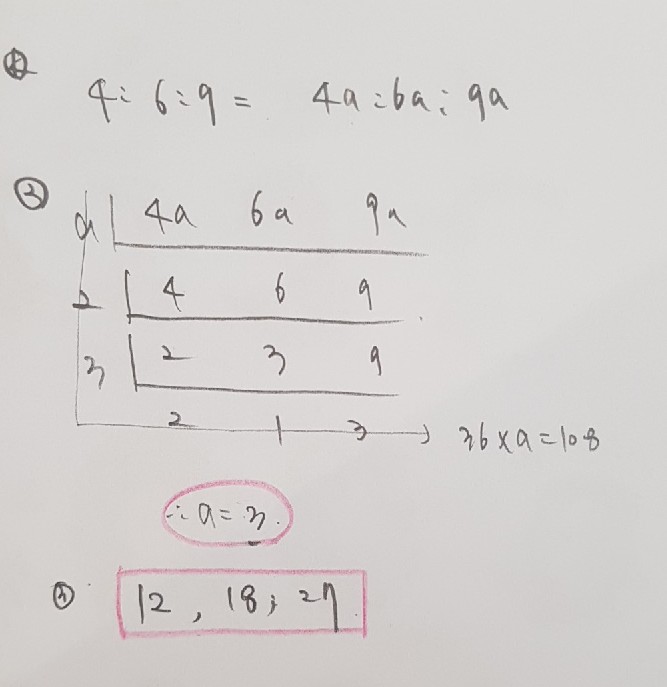 ① 4 : 6 : 9 = 4a : 6a : 9a
② a | 4a 6a 9a
2 | 4 6 9
3 | 2 3 9
2 1 3 → 36 × a = 108
∴ a = 3.
③ 12 , 18 , 27